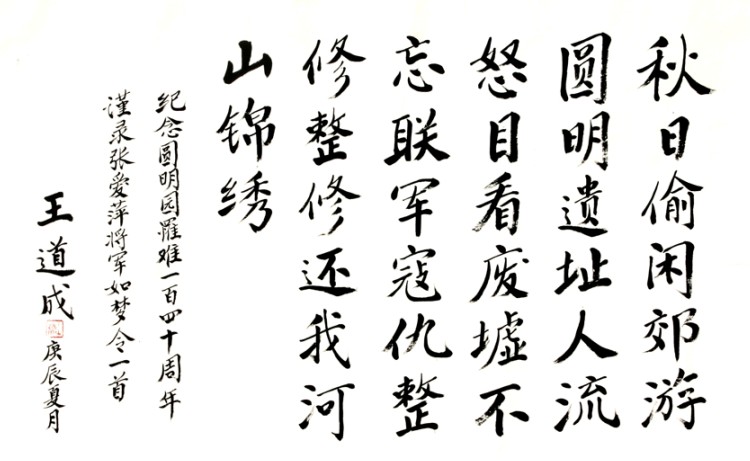 秋日偷闲郊游
圆明遗址人流
怒目看废墟不
忘联军寇仇整
修整修还我河
山锦绣
纪念圆明园罹难一百四十周年
谨录张爱萍将军如梦令一首
王道成
庚辰夏月